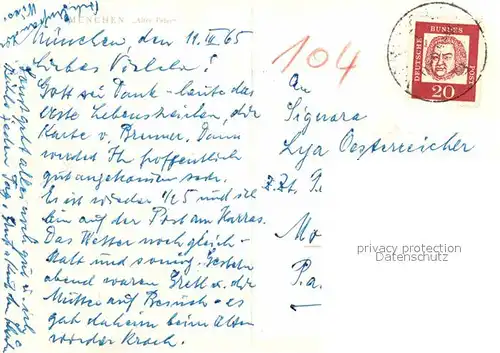 MÜNCHEN „Alter Peter"
München, den 11.III 65
Liebes
Gott sei Dank – heute das
erste Lebenszeichen, die
Karte v. Brenner. Dann
werdet Ihr hoffentlich
gut angekommen sein.
Es ist wieder 1/25 und ich
bin auf der Post am Harras.
Das Wetter noch gleich –
kalt und sonnig. Gestern
abend waren Gretl u. die
Mutter auf Besuch – es
gab daheim beim Alten
wieder Krach.
Sonst geht alles noch gut u. ich
jeden Tag
104
DEUTSCHE BUNDESPOST
20
An
Signora
Lya Oesterreicher
z.Zt.
Me
P.a.
privacy protection
Datenschutz